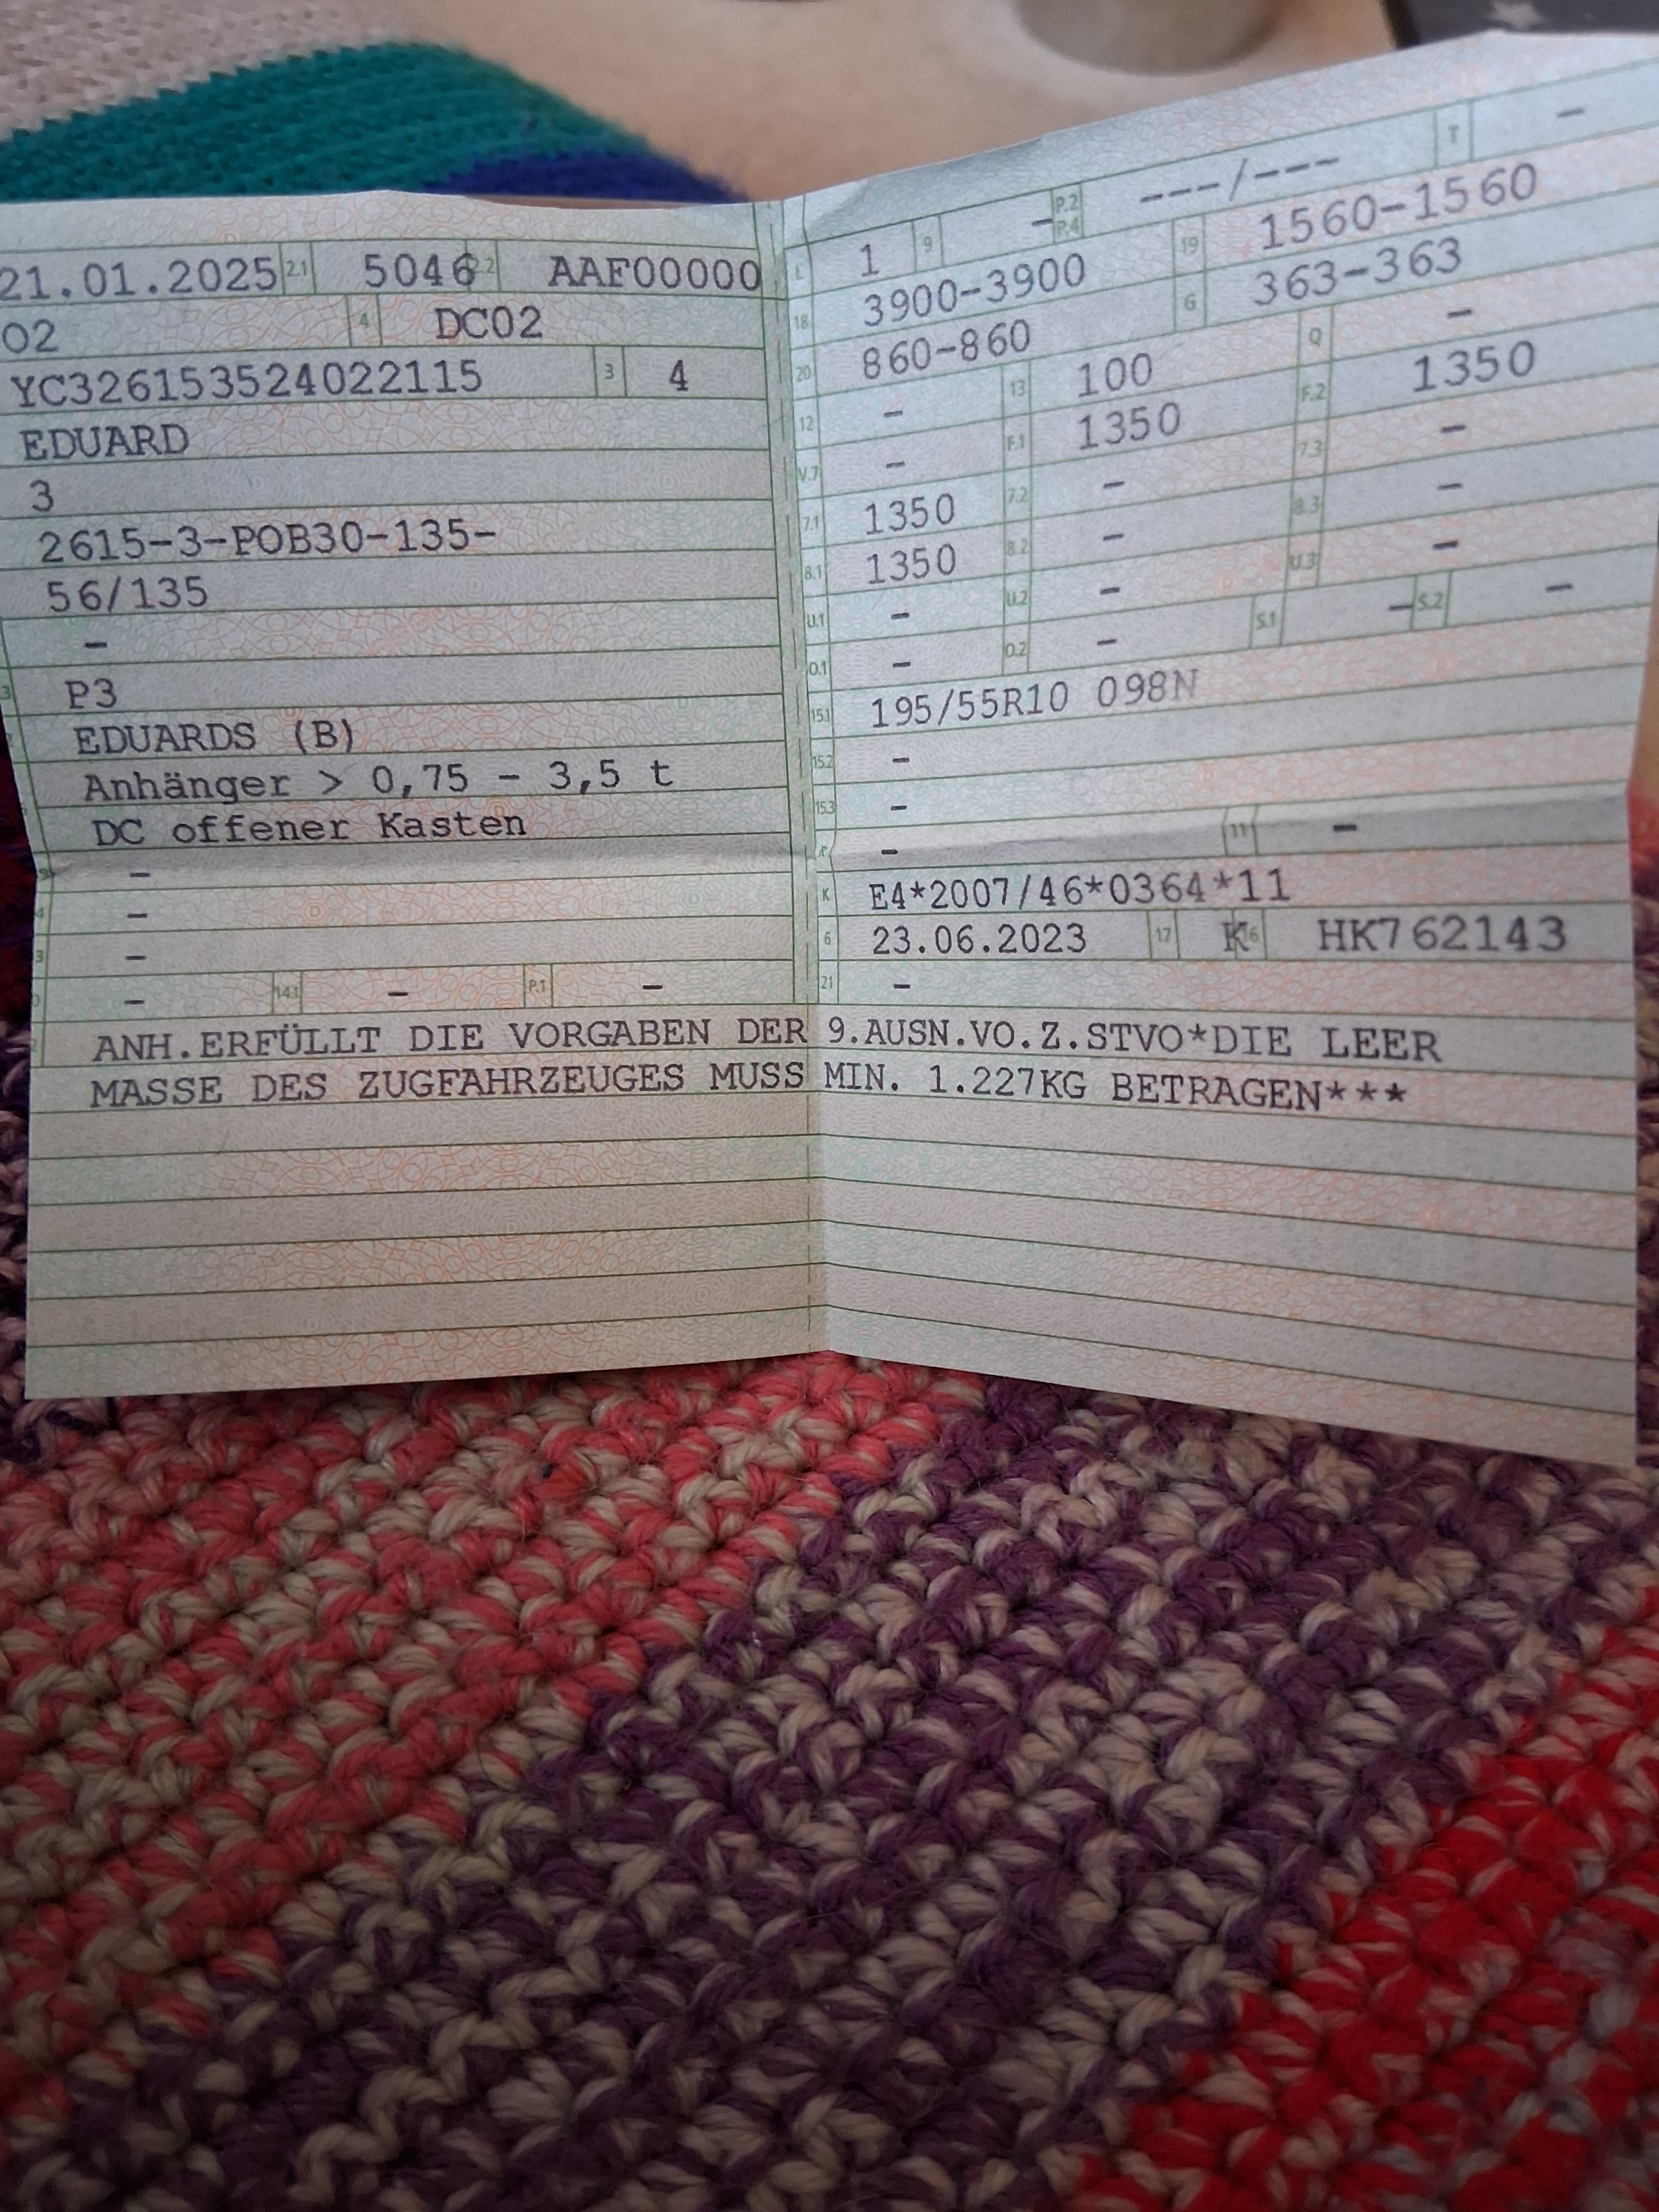 21.01.2025 2.1 5046 2.2 AAF00000
02 4 DC02
YC326153524022115 3 4
EDUARD
3
2615-3-POB30-135-
56/135
-
3 P3
EDUARDS (B)
Anhänger > 0,75 - 3,5 t
DC offener Kasten
-
4 -
3 -
- 14.1 - P.1 -
L 1 9 - P.2 P.4 ---/--- T -
18 3900-3900 19 1560-1560
20 860-860 G 363-363
12 - 13 100 Q -
V.7 - F.1 1350 F.2 1350
7.1 1350 7.2 - 7.3 -
8.1 1350 8.2 - 8.3 -
U.1 - U.2 - U.3 -
O.1 - O.2 - S.1 - S.2 -
15.1 195/55R10 098N
15.2 -
15.3 -
- 11 -
K E4*2007/46*0364*11
6 23.06.2023 17 K 16 HK762143
21 -
ANH.ERFÜLLT DIE VORGABEN DER 9.AUSN.VO.Z.STVO*DIE LEER
MASSE DES ZUGFAHRZEUGES MUSS MIN. 1.227KG BETRAGEN***